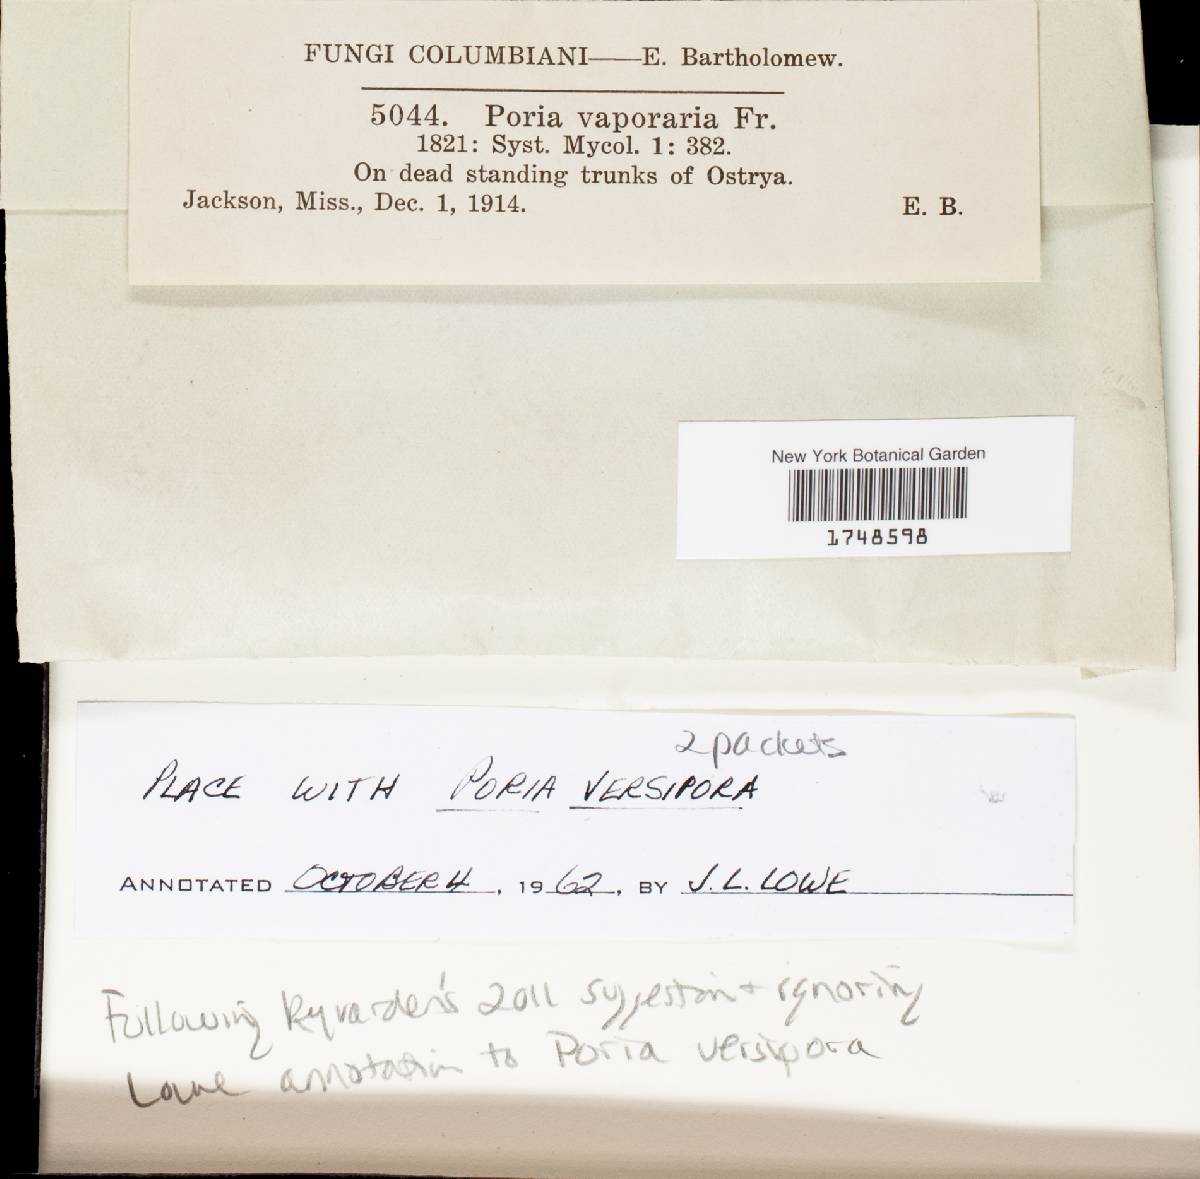 FUNGI COLUMBIANI——E. Bartholomew.
5044. Poria vaporaria Fr.
1821: Syst. Mycol. 1: 382.
On dead standing trunks of Ostrya.
Jackson, Miss., Dec. 1, 1914. E. B.
New York Botanical Garden
1748598
2 packets
PLACE WITH PORIA VERSIPORA
ANNOTATED OCTOBER 4, 1962, BY J. L. LOWE
Following Ryvarden's 2011 suggestion + ignoring
Lowe annotation to Poria versipora